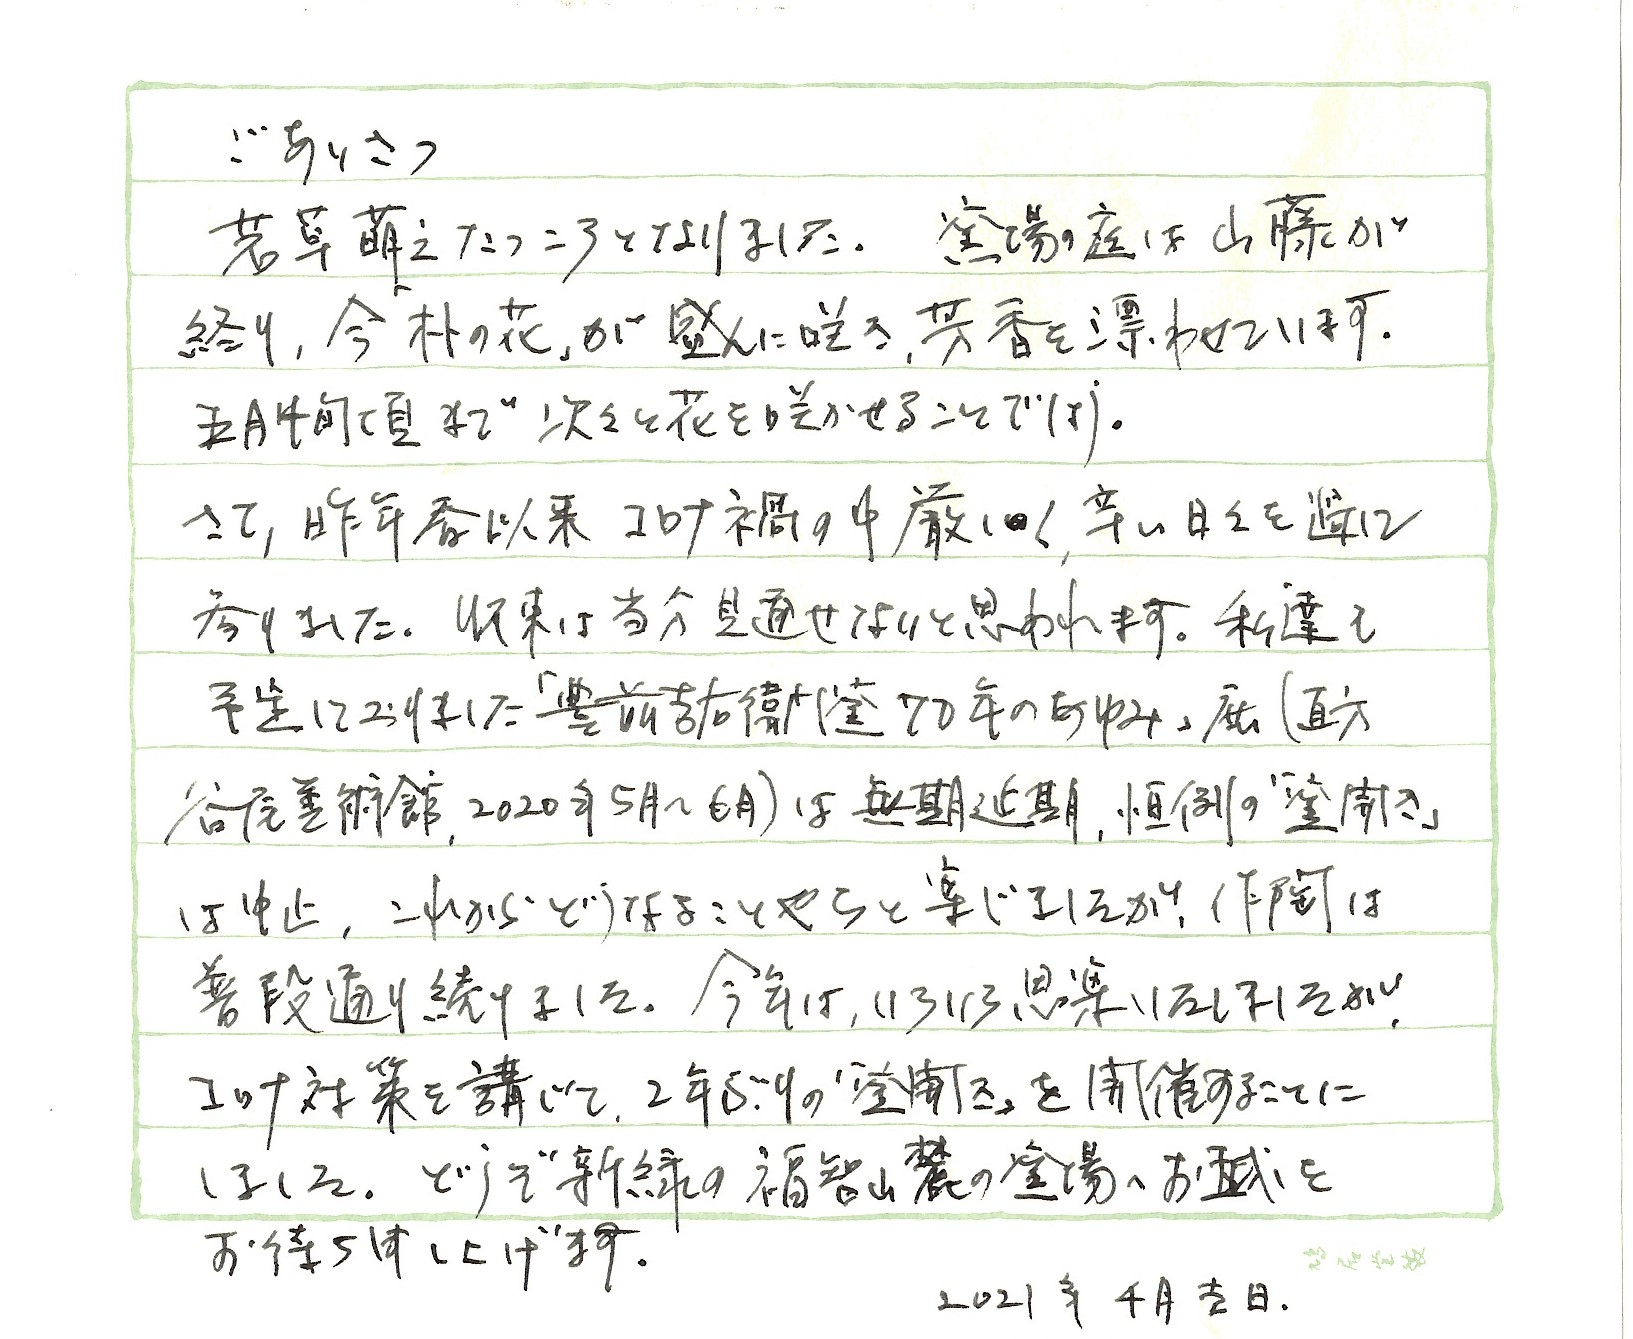 ごあいさつ
若草萌えたつころとなりました。 窯場の庭は山藤が
終り、今「朴の花」が盛んに咲き、芳香を漂わせています。
五月中旬頃まで次々と花を咲かせることでしょう。
さて、昨年春以来コロナ禍の中厳しく、辛い日々を過して
参りました。収束は当分見通せないと思われます。私達も
予定しておりました「豊前吉右衛門窯70年のあゆみ」展(直方
谷尾美術館、2020年5月〜6月)は無期延期、恒例の「窯開き」
は中止、これからどうなることやらと案じましたが、作陶は
普段通り続けました。今年は、いろいろ思案いたしましたが、
コロナ対策を講じて、2年ぶりの「窯開き」を開催することに
しました。どうぞ新緑の福智山麓の窯場へお越しを
お待ち申し上げます。
2021年4月吉日.